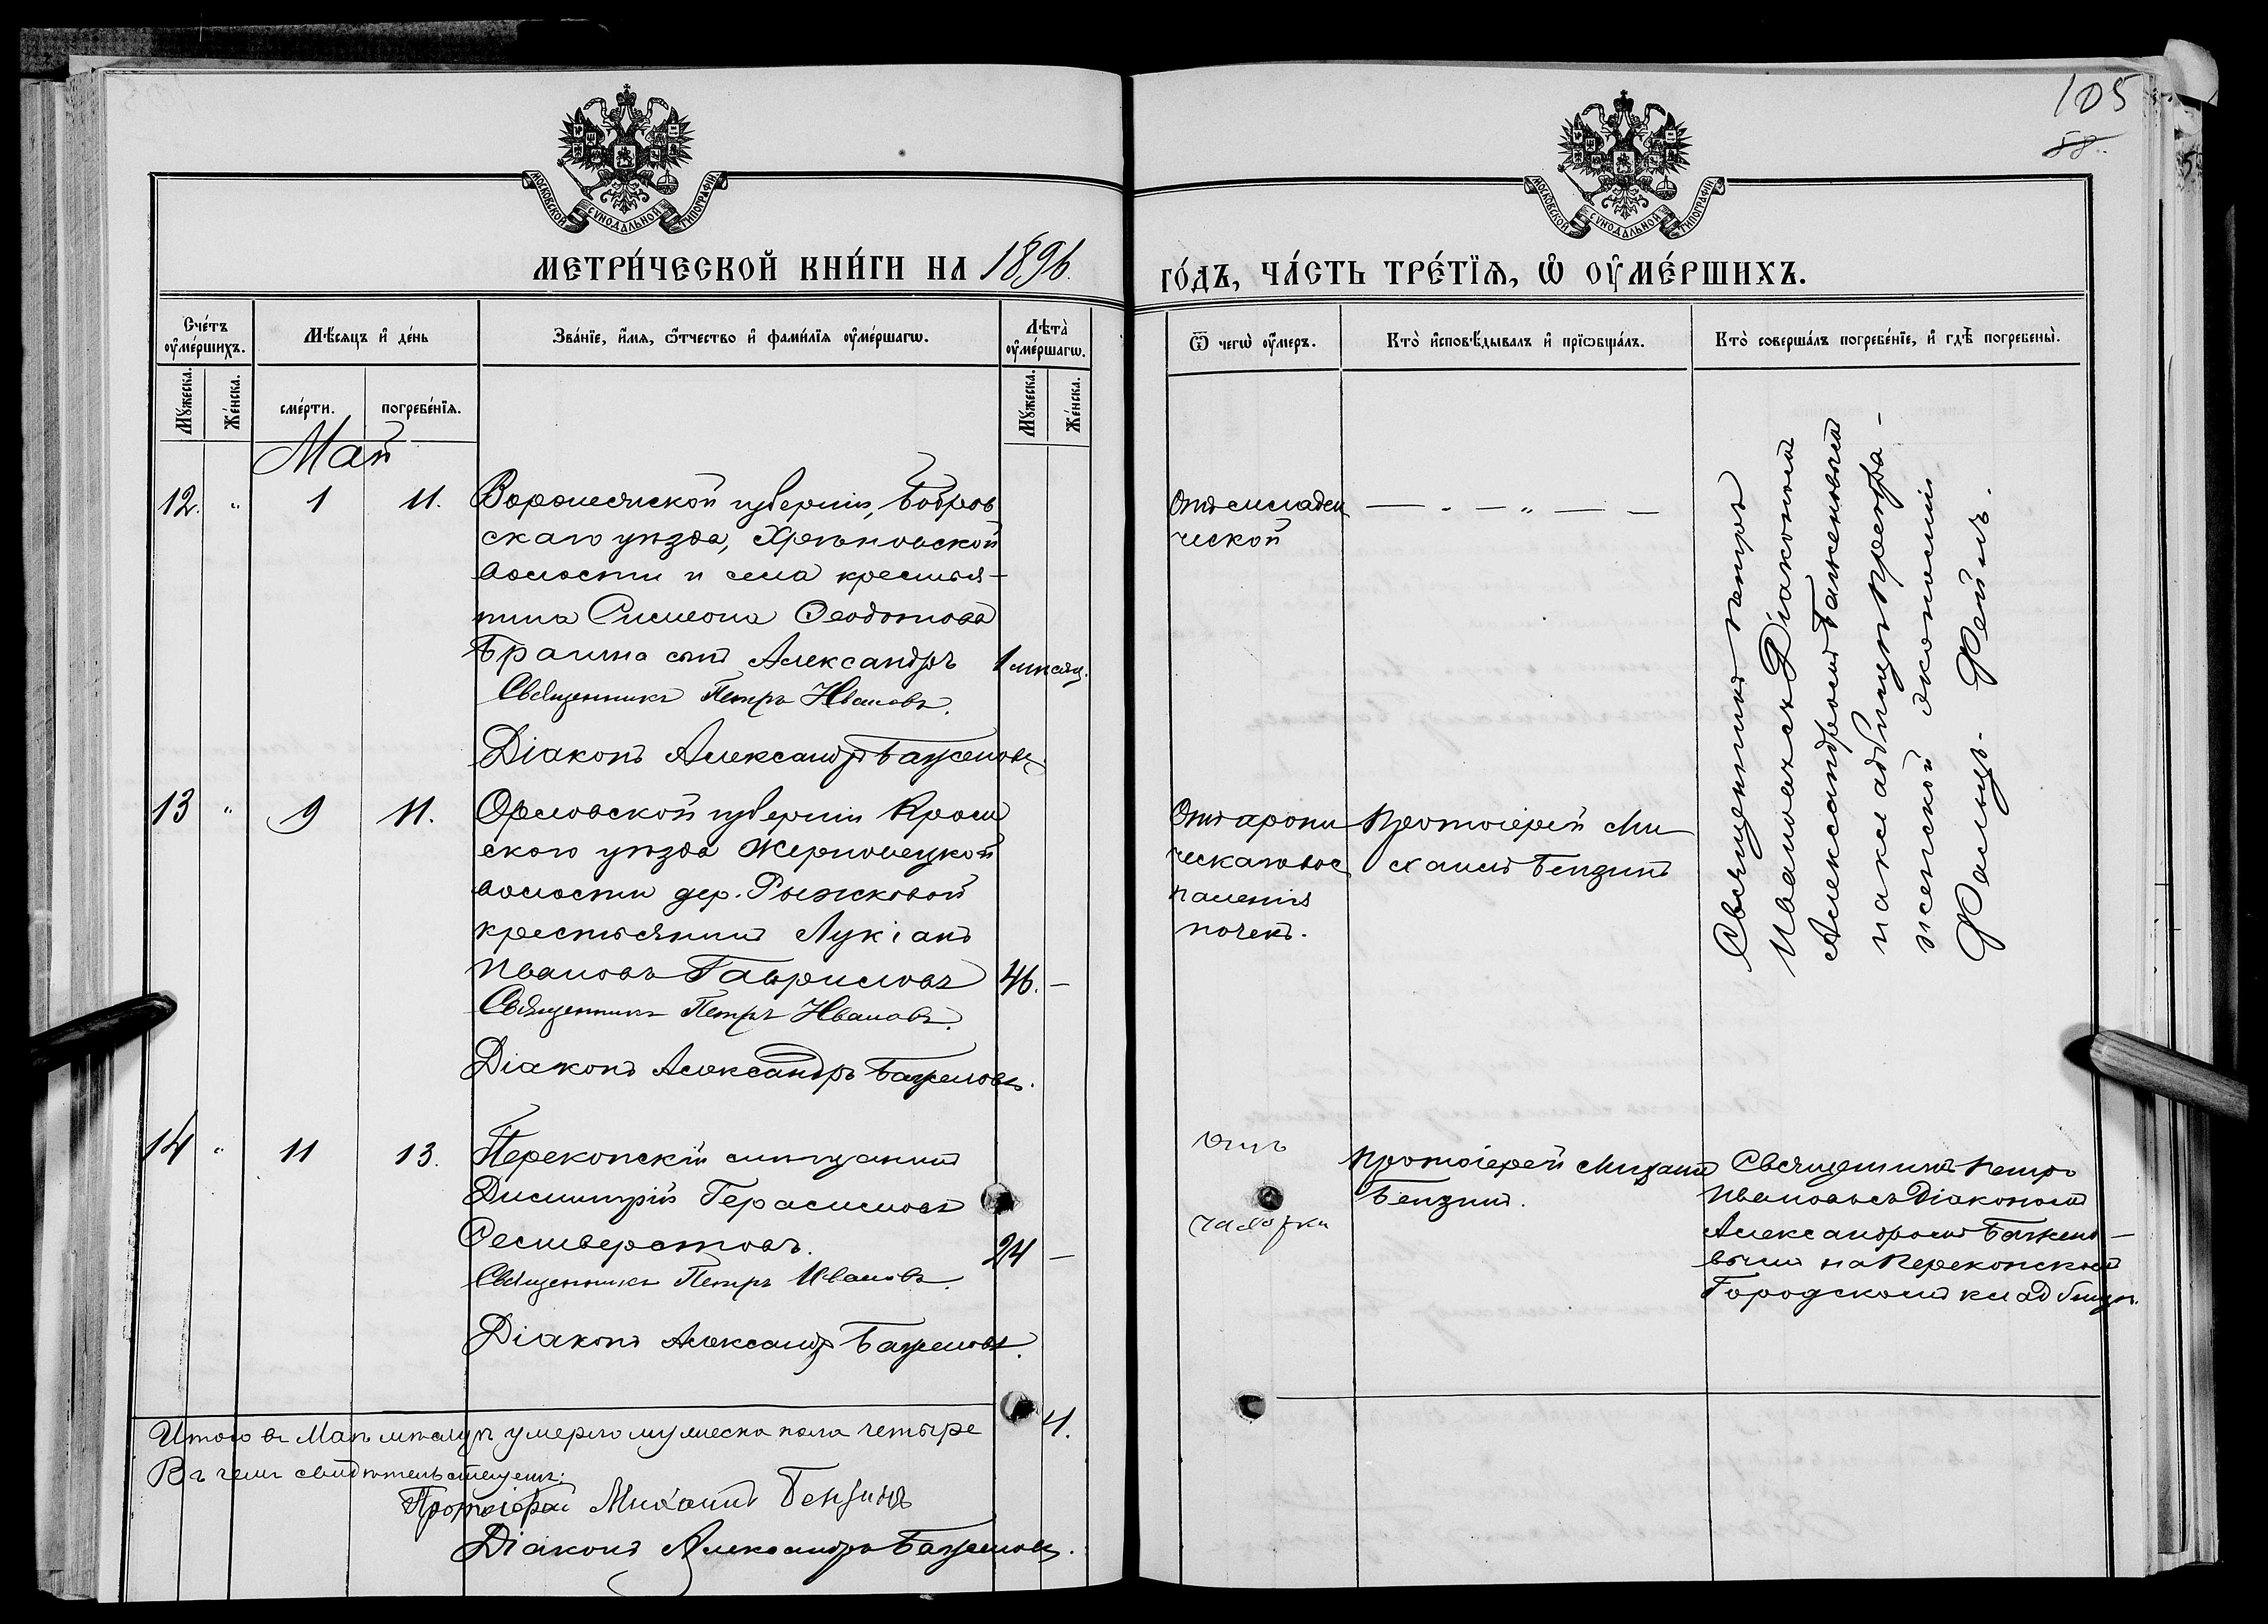 105
58.
МОСКОВСКОЙ СѴНОДАЛЬНОЙ ТИПОГРАФІИ
МОСКОВСКОЙ СѴНОДАЛЬНОЙ ТИПОГРАФІИ
МЕТРИ́ЧЕСКОЙ КНИ́ГИ НА 1896.
ГО́ДЪ, ЧА́СТЬ ТРЕ́ТЇѦ, Ѽ ОУ҆МЕ́РШИХЪ.
Сче́тъ оу҆ме́ршихъ.
Мѣ́сяцъ и҆ де́нь
Зва́нїе, и҆́мѧ, ѻ҆́тчество и҆ фами́лїѧ оу҆ме́ршагѡ.
Лѣта̀ оу҆ме́ршагѡ.
Ѿ чегѡ̀ оу҆́меръ.
Кто̀ и҆сповѣ́дывалъ и҆ прїѡбща́лъ.
Кто̀ соверша́лъ погребе́нїе, и҆ гдѣ̀ погребены̀.
Мꙋ́жеска.
Же́нска.
сме́рти.
погребе́нїѧ.
Мꙋ́жеска.
Же́нска.
Май
12. " 1 11. Воронежской губерніи, Бобров
скаго уѣзда, Хрѣновской
волости и села крестья-
нина Симеона Ѳеодотова
сынъ Александръ 1 мѣсяц.
Священникъ Петръ Ивановъ.
Діаконъ Александръ Баженовъ
Отъ младен
ческой
Священникъ Петръ
Ивановъ съ Діакономъ
Александромъ Баженовымъ
на кладбищѣ Преобра-
женской экономіи
Фальцъ-Фейнъ.
13 " 9 11. Орловской губерніи Кром
ского уѣзда Жерновецкой
волости дер. Рыжковой
крестьянинъ Лукіанъ
Ивановъ Гавриловъ 46. -
Священникъ Петръ Ивановъ.
Діаконъ Александръ Баженовъ.
Отъ хрони
ческаго вос
паленія
почекъ.
Протоіерей Ми
хаилъ Бензинъ
14 " 11 13. Перекопскій мѣщанинъ
Димитрій Герасимовъ
Селиверстовъ. 24 -
Священникъ Петръ Ивановъ.
Діаконъ Александръ Баженовъ.
Отъ
чахотки
Протоіерей Михаилъ
Бензинъ.
Священникъ Петръ
Ивановъ съ Діакономъ
Александромъ Бажено-
вымъ на Перекопскомъ
Городскомъ кладбищѣ.
Итого въ Маѣ мѣсяцѣ умерло мужеска пола четыре 4.
Въ чемъ свидѣтельствуемъ:
Протоіерей Михаилъ Бензинъ
Діаконъ Александръ Баженовъ.